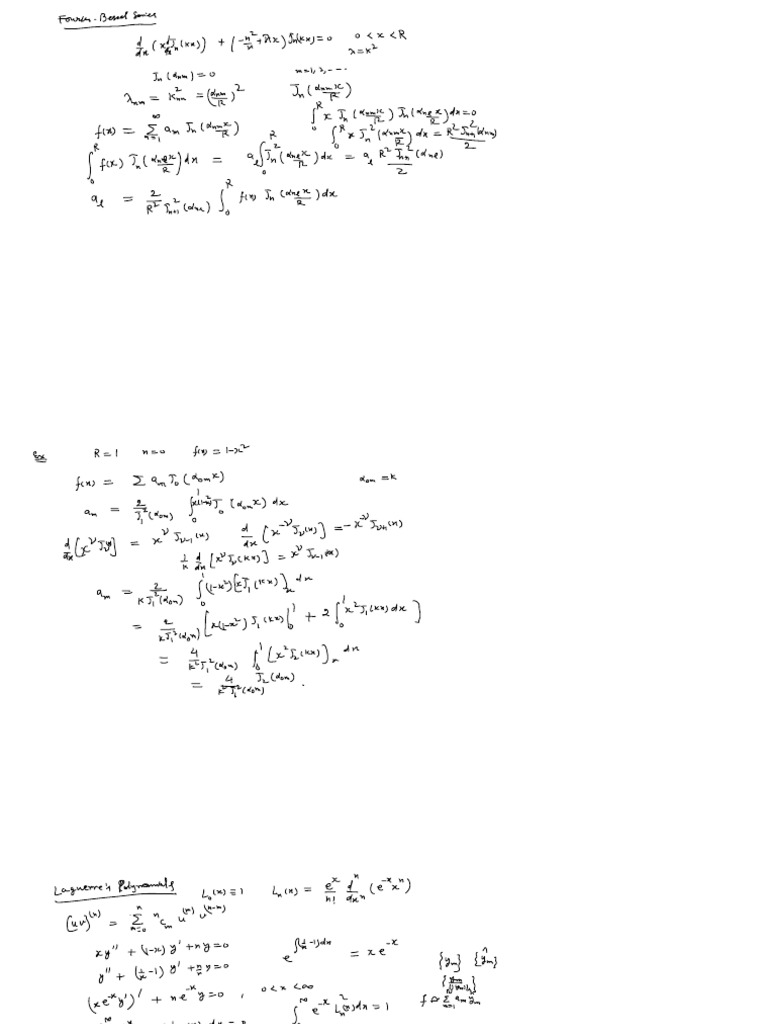 Fourier-Bessel Series
d/dx (x d/dx Jn(kx)) + (-n²/x + λx) Jn(kx) = 0   0 < x < R
λ = k²
Jn(αnm) = 0   m = 1, 2, ----
λnm = k²nm = (αnm/R)²   Jn(αnm x/R)
∫₀^R x Jn(αnm x/R) Jn(αnl x/R) dx = 0
f(x) = Σ_{m=1}^∞ am Jn(αnm x/R)   ∫₀^R x Jn²(αnm x/R) dx = R² J²n+1(αnm)/2
∫₀^R f(x) Jn(αnl x/R) dx = al ∫₀^R Jn²(αnl x/R) dx = al R² J²n+1(αnl)/2
al = 2/(R² J²n+1(αnl)) ∫₀^R f(x) Jn(αnl x/R) dx
Ex   R = 1   n = 0   f(x) = 1-x²
f(x) = Σ am J0(α0m x)   α0m = k
am = 2/J1²(α0m) ∫₀¹ x(1-x²) J0(α0m x) dx
d/dx [x^ν Jν] = x^ν Jν-1(x)   d/dx [x^-ν Jν(x)] = -x^-ν Jν+1(x)
1/k d/dx [x^ν Jν(kx)] = x^ν Jν-1(kx)
am = 2/(k J1²(α0m)) ∫₀¹ (1-x²) [x J1(kx)]x dx
= 2/(k J1²(α0m)) [x(1-x²) J1(kx)|₀¹ + 2 ∫₀¹ x² J1(kx) dx]
= 4/(k² J1²(α0m)) ∫₀¹ [x² J2(kx)]x dx
= 4/(k² J1²(α0m)) J2(α0m) .
Laguerre's Polynomials   L0(x) ≡ 1   Ln(x) = e^x/n! d^n/dx^n (e^-x x^n)
(uv)^(n) = Σ_{m=0}^n nCm u^(m) v^(n-m)
xy'' + (1-x) y' + ny = 0   e^∫(1/x -1)dx = x e^-x
y'' + (1/x -1) y' + n/x y = 0   {ym}   {ŷm}
(x e^-x y')' + n e^-x y = 0 ,   0 < x < ∞
∫₀^∞ e^-x Ln²(x) dx = 1   f ≈ Σ am ym